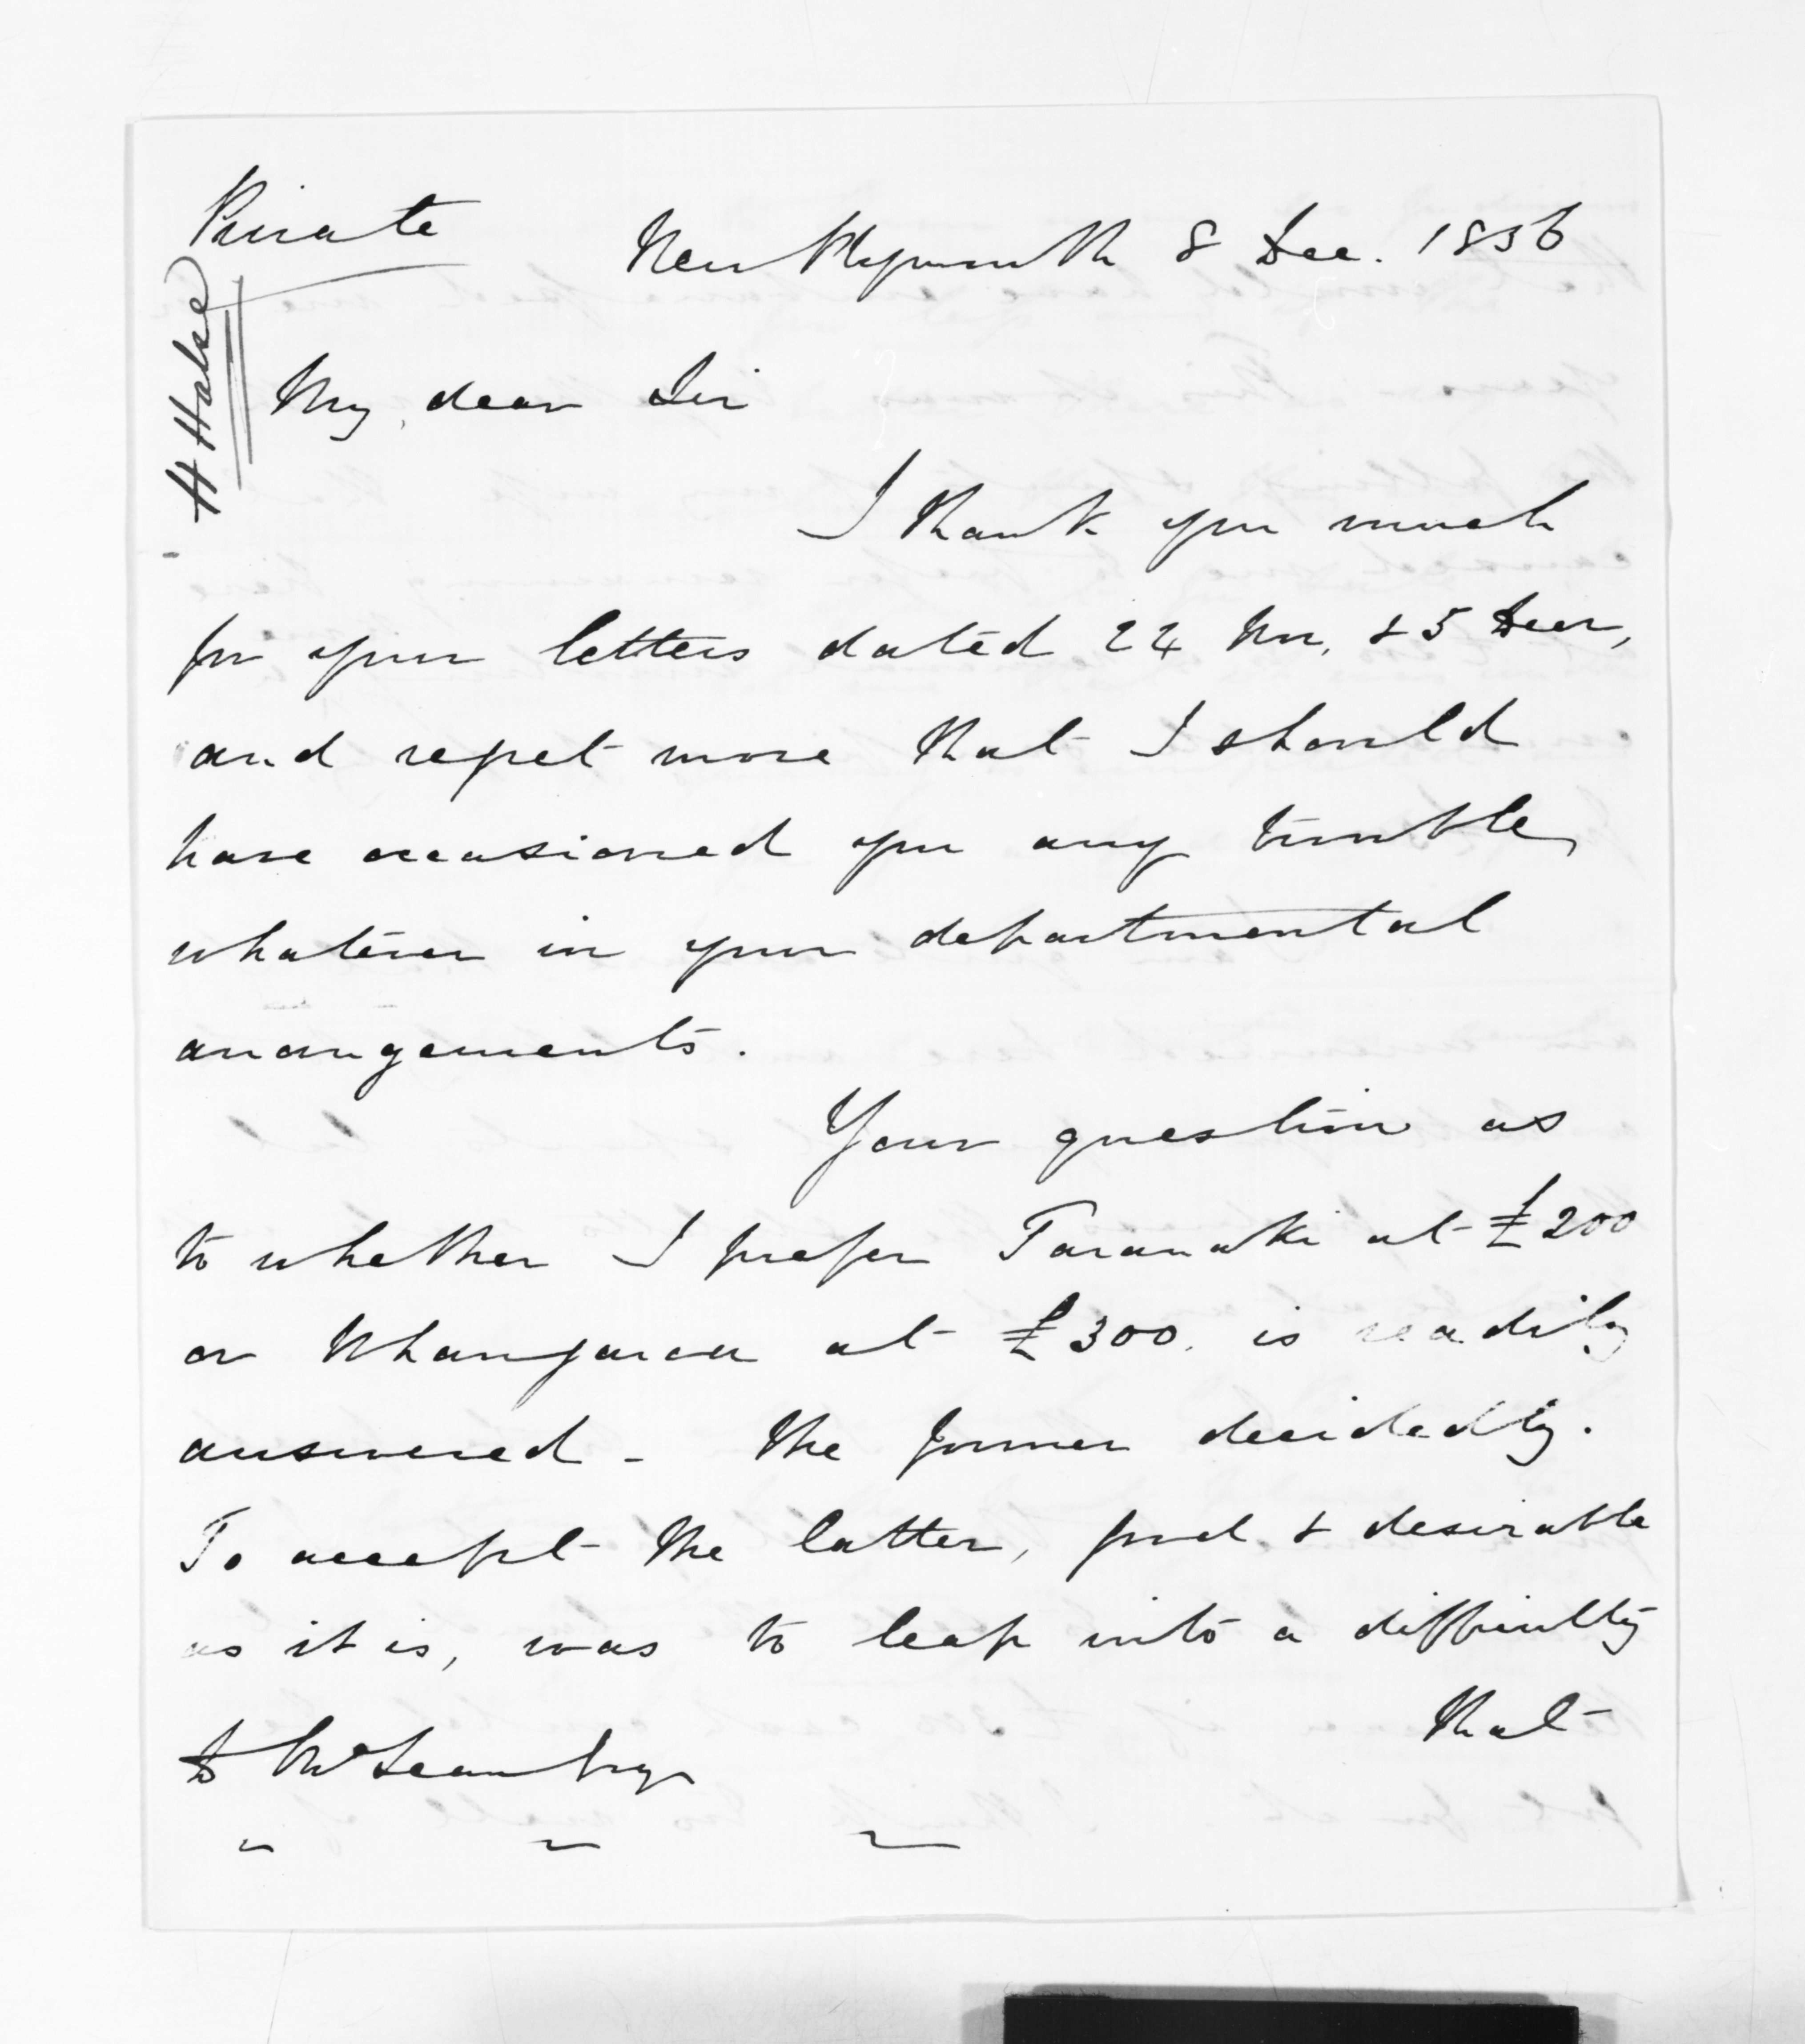 Private
New Plymouth 8 Dec. 1856
H Halse
My dear Sir
I thank you much
for your letters dated 24 Nov. & 5 Decr,
and regret more that I should
have occasioned you any trouble
whatever in your departmental
arrangements.
Your question as
to whether I prefer Taranaki at £200
or Whangarei at £300. is readily
answered - the former decidedly.
To accept the latter, good & desirable
as it is, was to leap into a difficulty
that
D McLean Esqr